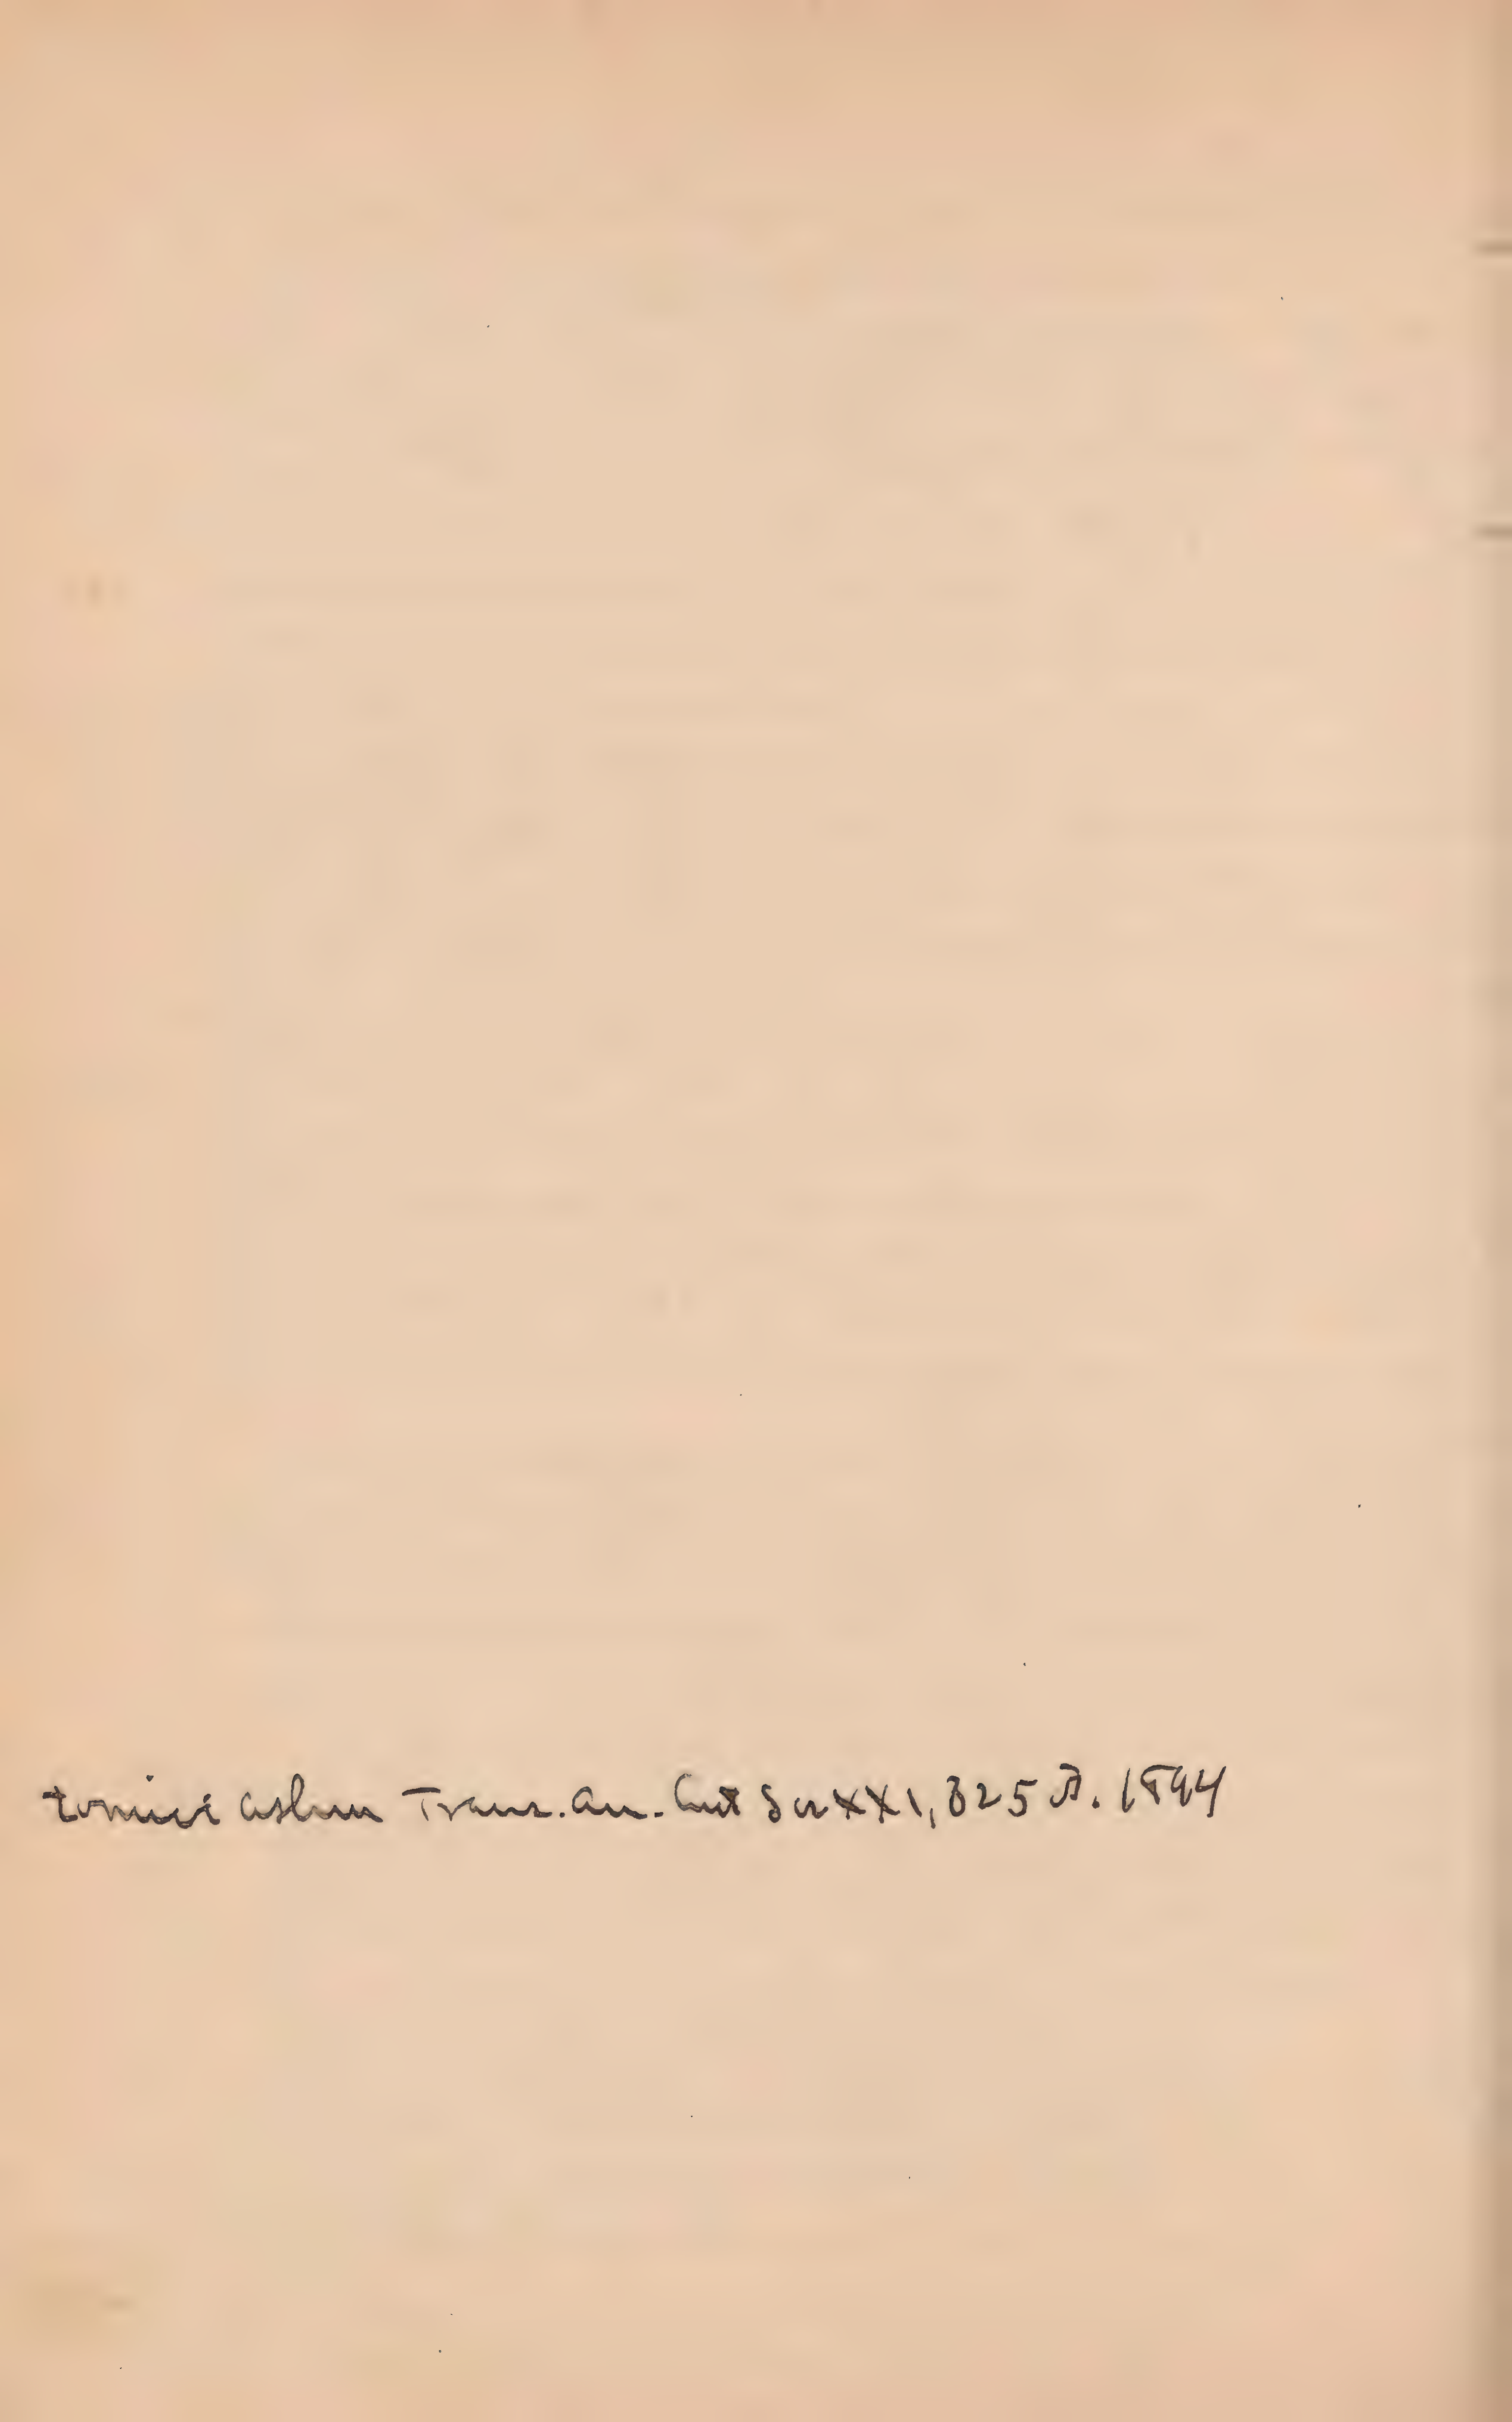 tomici Ashm Trans. Am. Ent Soc XXI, 325 ♂. 1894